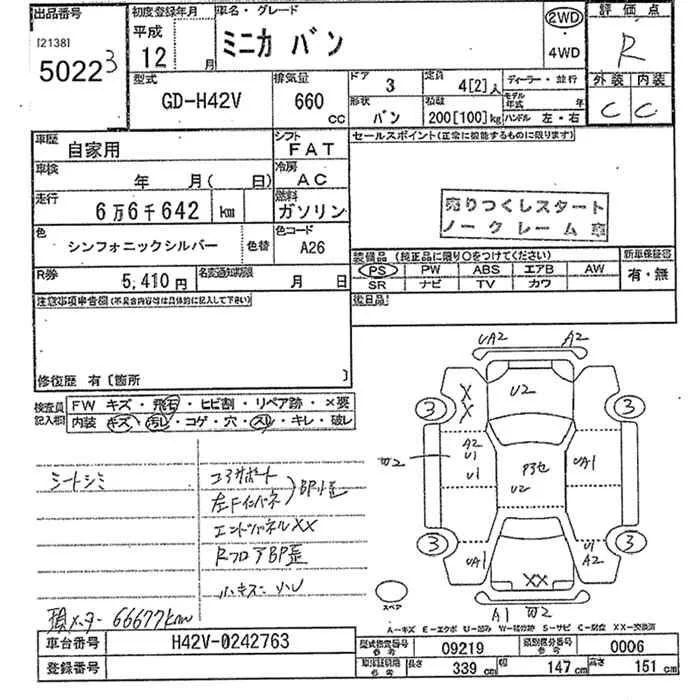 出品番号
[2138]
50223
初度登録年月
平成
12 月
車名・グレード
ミニカ バン
2WD
・
4WD
評価点
R
外装 内装
C C
型式
GD-H42V
排気量
660 cc
ドア 3
定員 4[2]人
ディーラー・並行
形状 バン
積載 200[100]kg
モデル年式 年
ハンドル 左・右
車歴 自家用
シフト FAT
車検 年 月( 日)
冷房 AC
走行 6万6千642 km
燃料 ガソリン
色 シンフォニックシルバー
色替
色コード A26
R券 5,410円
名変通知期限 月 日
セールスポイント(正常に機能するものに限ります)
売りつくしスタート
ノークレーム
装備品 (純正品に限り○をつけてください)
新車保証書
PS PW ABS エアB AW
有・無
SR ナビ TV カワ
後日品
注意事項申告欄(不具合内容等は具体的に記入して下さい)
修復歴 有〔箇所 〕
検査員記入欄
FW キズ・飛石・ヒビ割・リペア跡・×要
内装 キズ・汚レ・コゲ・穴・スレ・キレ・破レ
シートシミ
コアサポート
左Fインパネ
BP小歪
エンドパネルXX
RフロアBP歪
小キズ・凹
現メーター 66677km
UA2 A2
U2
X
X
3 3
A2
U1
U1
W2
U2
UA1
3 3
UA1
U1
A2
XX
スペア
A1 W2
A-キズ E-エクボ U-凹み W-補修跡 S-サビ C-腐食 XX-交換済
車台番号 H42V-0242763
登録番号
型式指定番号 参考 09219
類別区分番号 参考 0006
車体証明用 参考
長さ 339 cm
幅 147 cm
高さ 151 cm